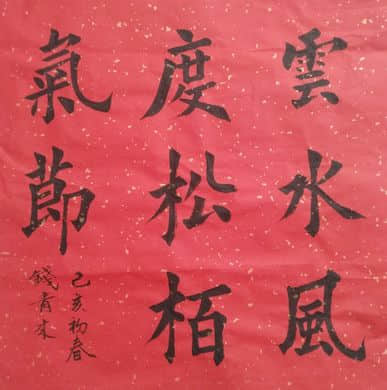 雲水風
度松栢
氣節
己亥初春
錢